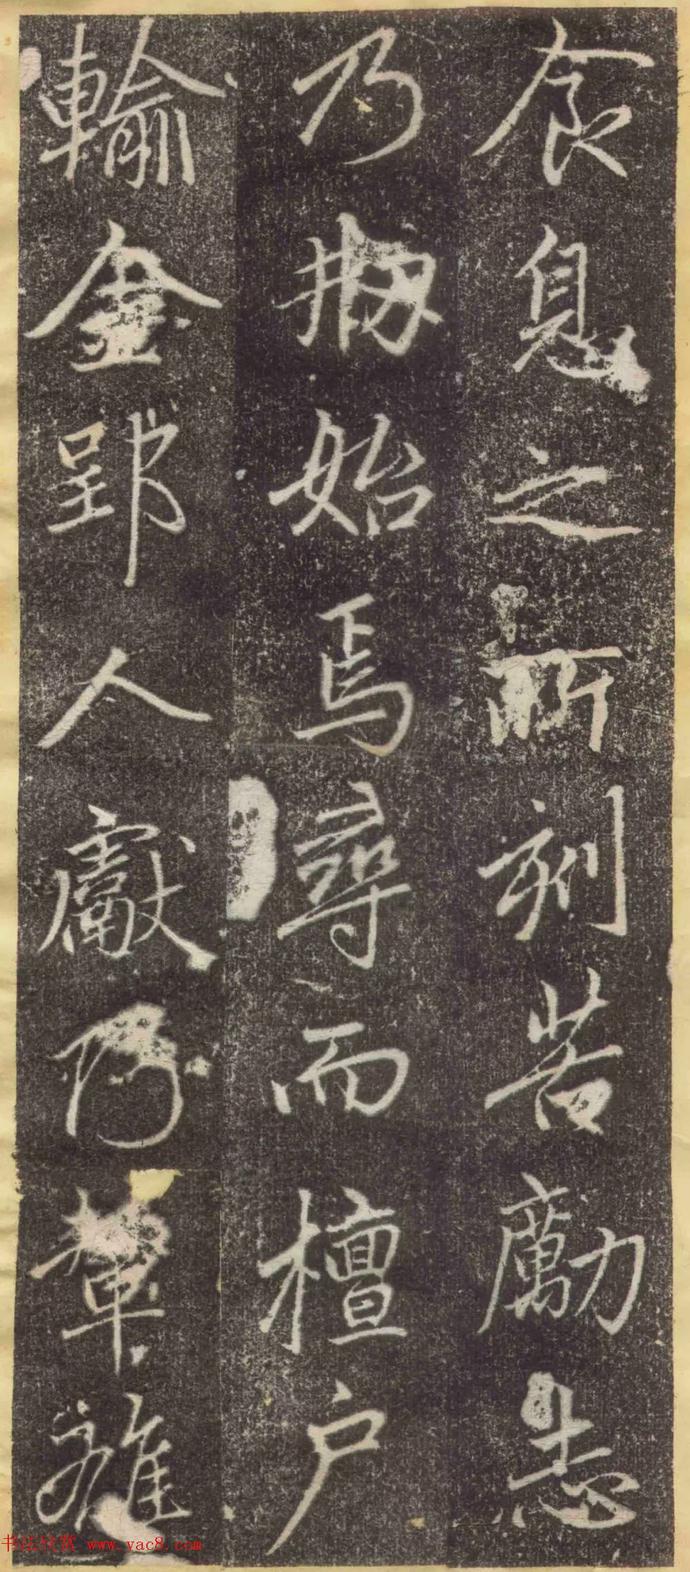 食息之所刻苦勵志
乃刱始焉尋而檀户
輸金郢人獻輦
书法欣赏 www.yac8.com